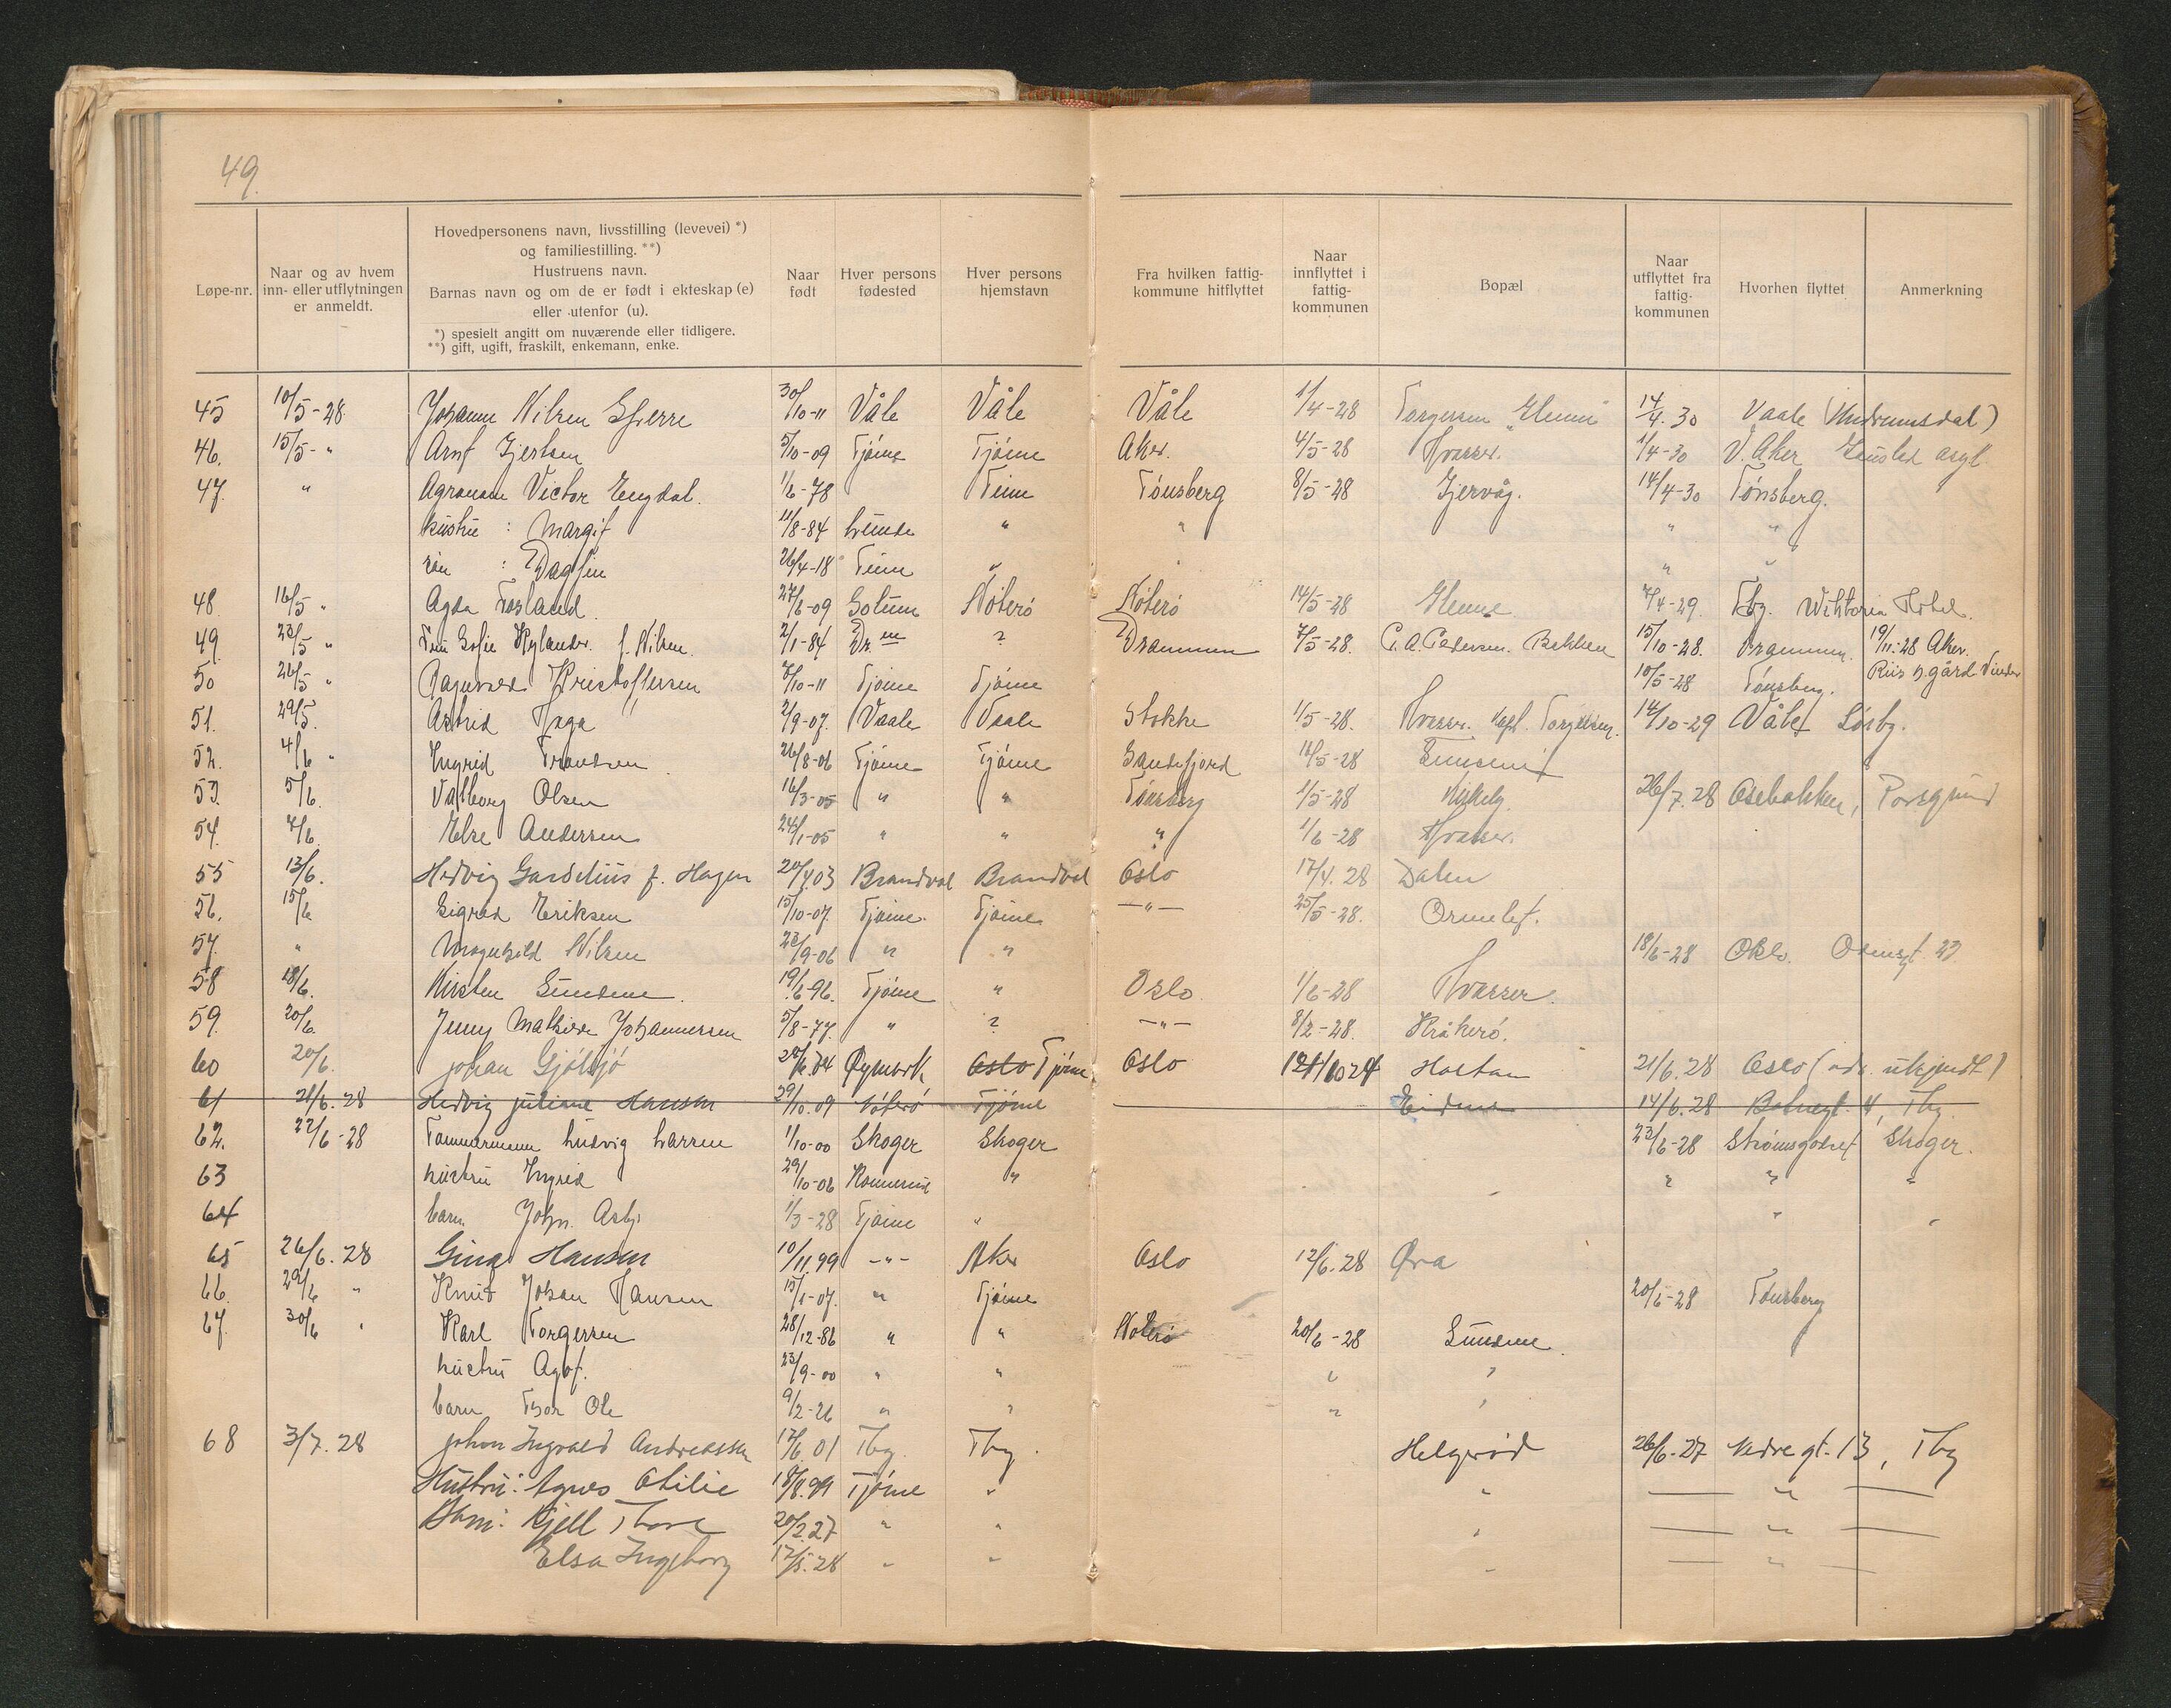 49.
Løpe-nr.
Naar og av hvem inn- eller utflytningen er anmeldt.
Hovedpersonens navn, livsstilling (levevei) *)
og familiestilling. **)
Hustruens navn.
Barnas navn og om de er født i ekteskap (e)
eller utenfor (u).
*) spesielt angitt om nuværende eller tidligere.
**) gift, ugift, fraskilt, enkemann, enke.
Naar født
Hver persons fødested
Hver persons hjemstavn
Fra hvilken fattig-kommune hitflyttet
Naar innflyttet i fattig-kommunen
Bopæl
Naar utflyttet fra fattig-kommunen
Hvorhen flyttet
Anmerkning
45 10/5-28 Johanne Nilsen 30/10-11 Våle Våle Våle 1/4-28 Torgersen 14/4.30 Vaale (Undrumsdal)
46. 15/5- " Arnt Gjertsen 5/10-09 Tjøme Tjøme Aker. 4/5-28 Hvasser. 1/4-30 V. Aker
47. " Agronom Victor Engdal. 1/6-78 Tinn Tønsberg 8/5-28 Gjervåg. 14/4-30 Tønsberg.
hustru : Margit 11/8-84 Lunde " " " "
søn : Dagfin 26/4-18 Tinn " " " "
48. 16/5 " Agda Fosland. 27/6-09 Solum Nøterø Nøterø 14/5-28 7/4-29 Tbg. Wiktoria Hotel.
49. 23/5 " Sofie Rylander f. Nilsen 2/1-84 Dr.en ? Drammen 7/5-28. C. A. Pedersen. Bekken 15/10-28. Drammen. 19/11-28 Aker.
50 26/5 " Ragnvald Kristoffersen 7/10-11 Tjøme Tjøme 10/5-28 Tønsberg. Riis h.gård Vinder
51. 29/5. Astrid Haga 2/9-07. Vaale Vaale Stokke 1/5-28. Hvasser. 14/10-29 Våle
52. 4/6 " Ingrid Frandsen 26/8-06 Tjøme Tjøme Sandefjord 16/5-28
53. 5/6. Valborg Olsen 16/3-05 " " Tønsberg 1/5-28 26/7.28 Osebakken, Porsgrund
54. 7/6. Else Andersen 24/1-05 " " " 1/6-28 Hvasser.
55 13/6. Hedvig Gardelius f. Hagen 20/4.03 Brandval Brandval Oslo 17/4.28 Dalen
56. 15/6 Sigrid Eriksen 15/10-07. Tjøme. Tjøme -"- 25/5-28. Ormelet.
57. " Magnhild Nilsen 23/9-06 " " 18/6-28 Oslo.
58 18/6. Kirsten Sundene. 19/6-96. Tjøme " Oslo. 1/6-28 Hvasser.
59. 20/6 Jenny Mathilde Johannessen 5/8-77. " ? -"- 8/2-28. Kråkerø.
60 20/6. Johan Gjølsjø Øymark Oslo Tjøme Oslo Holtan 21/6.28 Oslo (adr. ukjendt)
61 21/6.28 Hedvig Juliane Hansen 29/10.09 Nøterø Tjøme Eidene 14/6.28 4, Tbg.
62. 22/6-28 Tømmermann Ludvig Larsen 1/10-00 Skoger Skoger 23/6-28 Strømsgodset Skoger.
63 hustru Ingrid 29/10-06 Konnerud " " " "
64 barn John Asbj. 1/3-28 Tjøme " " "
65 26/6.28 Gina Hansen 10/11.99 -"- Aker Oslo 12/6.28 Øra
66. 29/6 " Knut Johan Hansen 15/1-07. " Tjøme 20/6-28 Tønsberg
67. 30/6 " Karl Torgersen 28/12-86 " " Nøterø 20/6-28 Sundene.
hustru Agot. 23/9-00 " " " "
barn Thor Ole 9/2-26 " " " "
68 3/7.28 Johan Ingvald Andreassen 17/6.01 Tbg. Tbg. Helgerød 26/6-27 Nedre gt. 13, Tbg
Hustru: Agnes Otilie 18/8.99 Tjøme " " "
Barn: Kjell Thore 20/2.27 " " " "
Elsa Ingeborg 17/5.28 " " " "